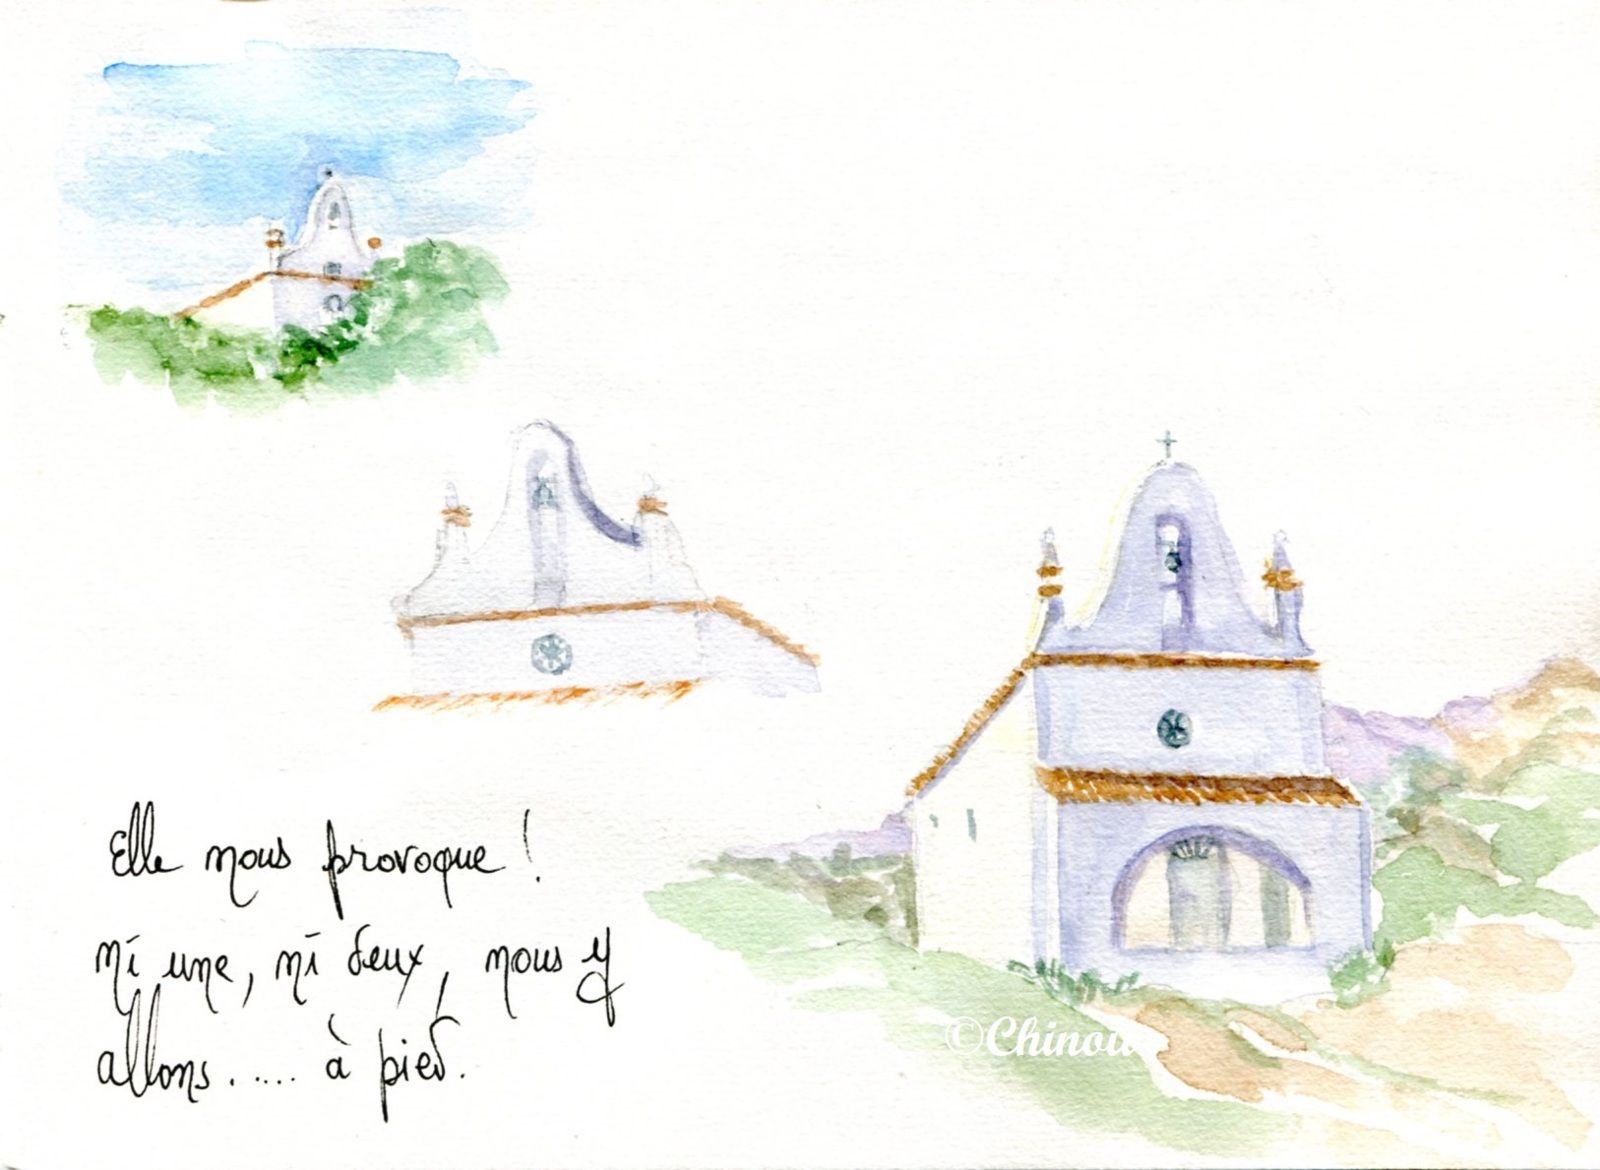 Elle nous provoque !
ni une, ni deux, nous y
allons..... à pied.
©Chinou